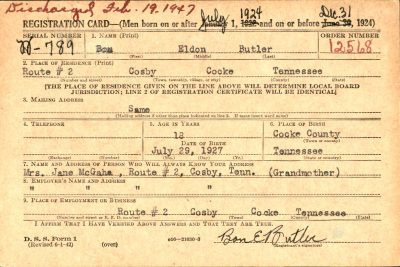 Discharged Feb. 19, 1947
REGISTRATION CARD—(Men born on or after July 1, 1924 and on or before Dec. 31, 1924)
SERIAL NUMBER 1. NAME (Print) ORDER NUMBER
W-789 Bon Eldon Butler 12568
(First) (Middle) (Last)
2. PLACE OF RESIDENCE (Print)
Route # 2 Cosby Cocke Tennessee
(Number and street) (Town, township, village, or city) (County) (State)
[THE PLACE OF RESIDENCE GIVEN ON THE LINE ABOVE WILL DETERMINE LOCAL BOARD
JURISDICTION; LINE 2 OF REGISTRATION CERTIFICATE WILL BE IDENTICAL]
3. MAILING ADDRESS
Same
(Mailing address if other than place indicated on line 2. If same insert word same)
4. TELEPHONE 5. AGE IN YEARS 6. PLACE OF BIRTH
18 Cocke County
DATE OF BIRTH (Town or county)
July 29, 1927 Tennessee
(Exchange) (Number) (Mo.) (Day) (Yr.) (State or country)
7. NAME AND ADDRESS OF PERSON WHO WILL ALWAYS KNOW YOUR ADDRESS
Mrs. Jane McGaha, Route # 2, Cosby, Tenn. (Grandmother)
8. EMPLOYER'S NAME AND ADDRESS
" " " " "
9. PLACE OF EMPLOYMENT OR BUSINESS
Route # 2 Cosby Cocke Tennessee
(Number and street or R. F. D. number) (Town) (County) (State)
I AFFIRM THAT I HAVE VERIFIED ABOVE ANSWERS AND THAT THEY ARE TRUE.
D. S. S. Form 1
(Revised 6-1-42) (over) 16—21630-3 Bon E. Butler
(Registrant's signature)